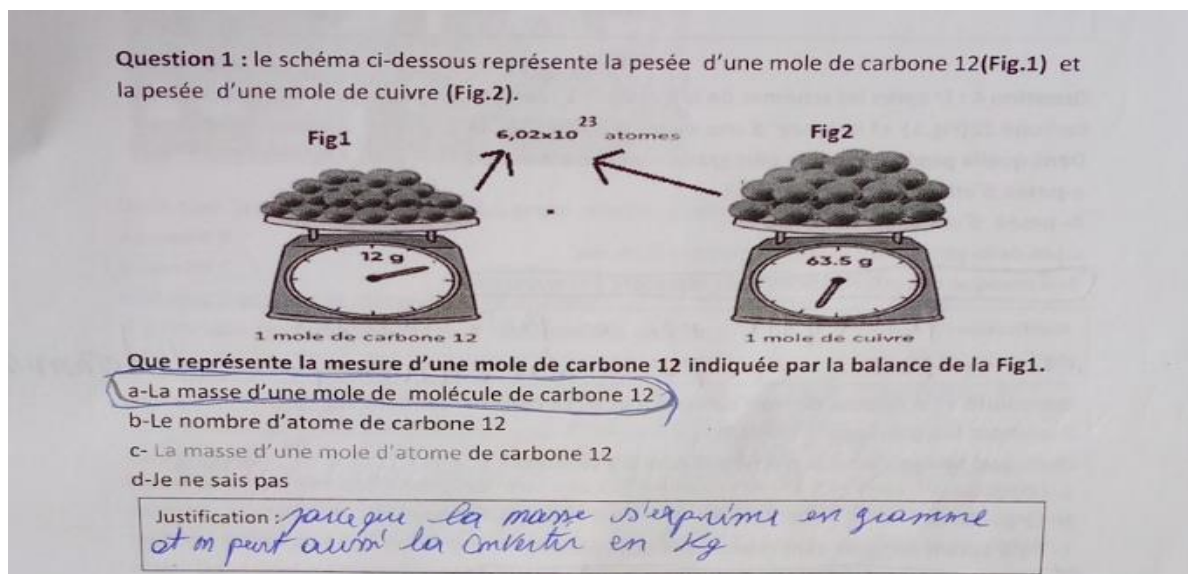 Question 1 : le schéma ci-dessous représente la pesée d'une mole de carbone 12(Fig.1) et
la pesée d'une mole de cuivre (Fig.2).
Fig1
6,02x10²³ atomes
Fig2
12 g
63.5 g
1 mole de carbone 12
1 mole de cuivre
Que représente la mesure d'une mole de carbone 12 indiquée par la balance de la Fig1.
a-La masse d'une mole de molécule de carbone 12
b-Le nombre d'atome de carbone 12
c- La masse d'une mole d'atome de carbone 12
d-Je ne sais pas
Justification : parce que la masse s'exprime en gramme
et on peut aussi la convertir en Kg